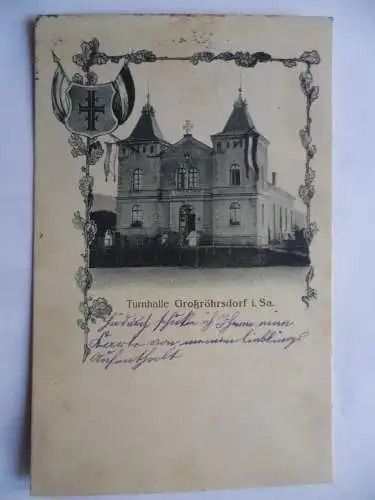 Turnhalle Großröhrsdorf i. Sa.
schicke ich Ihnen eine
Karte von meinem Lieblings
Aufenthalt